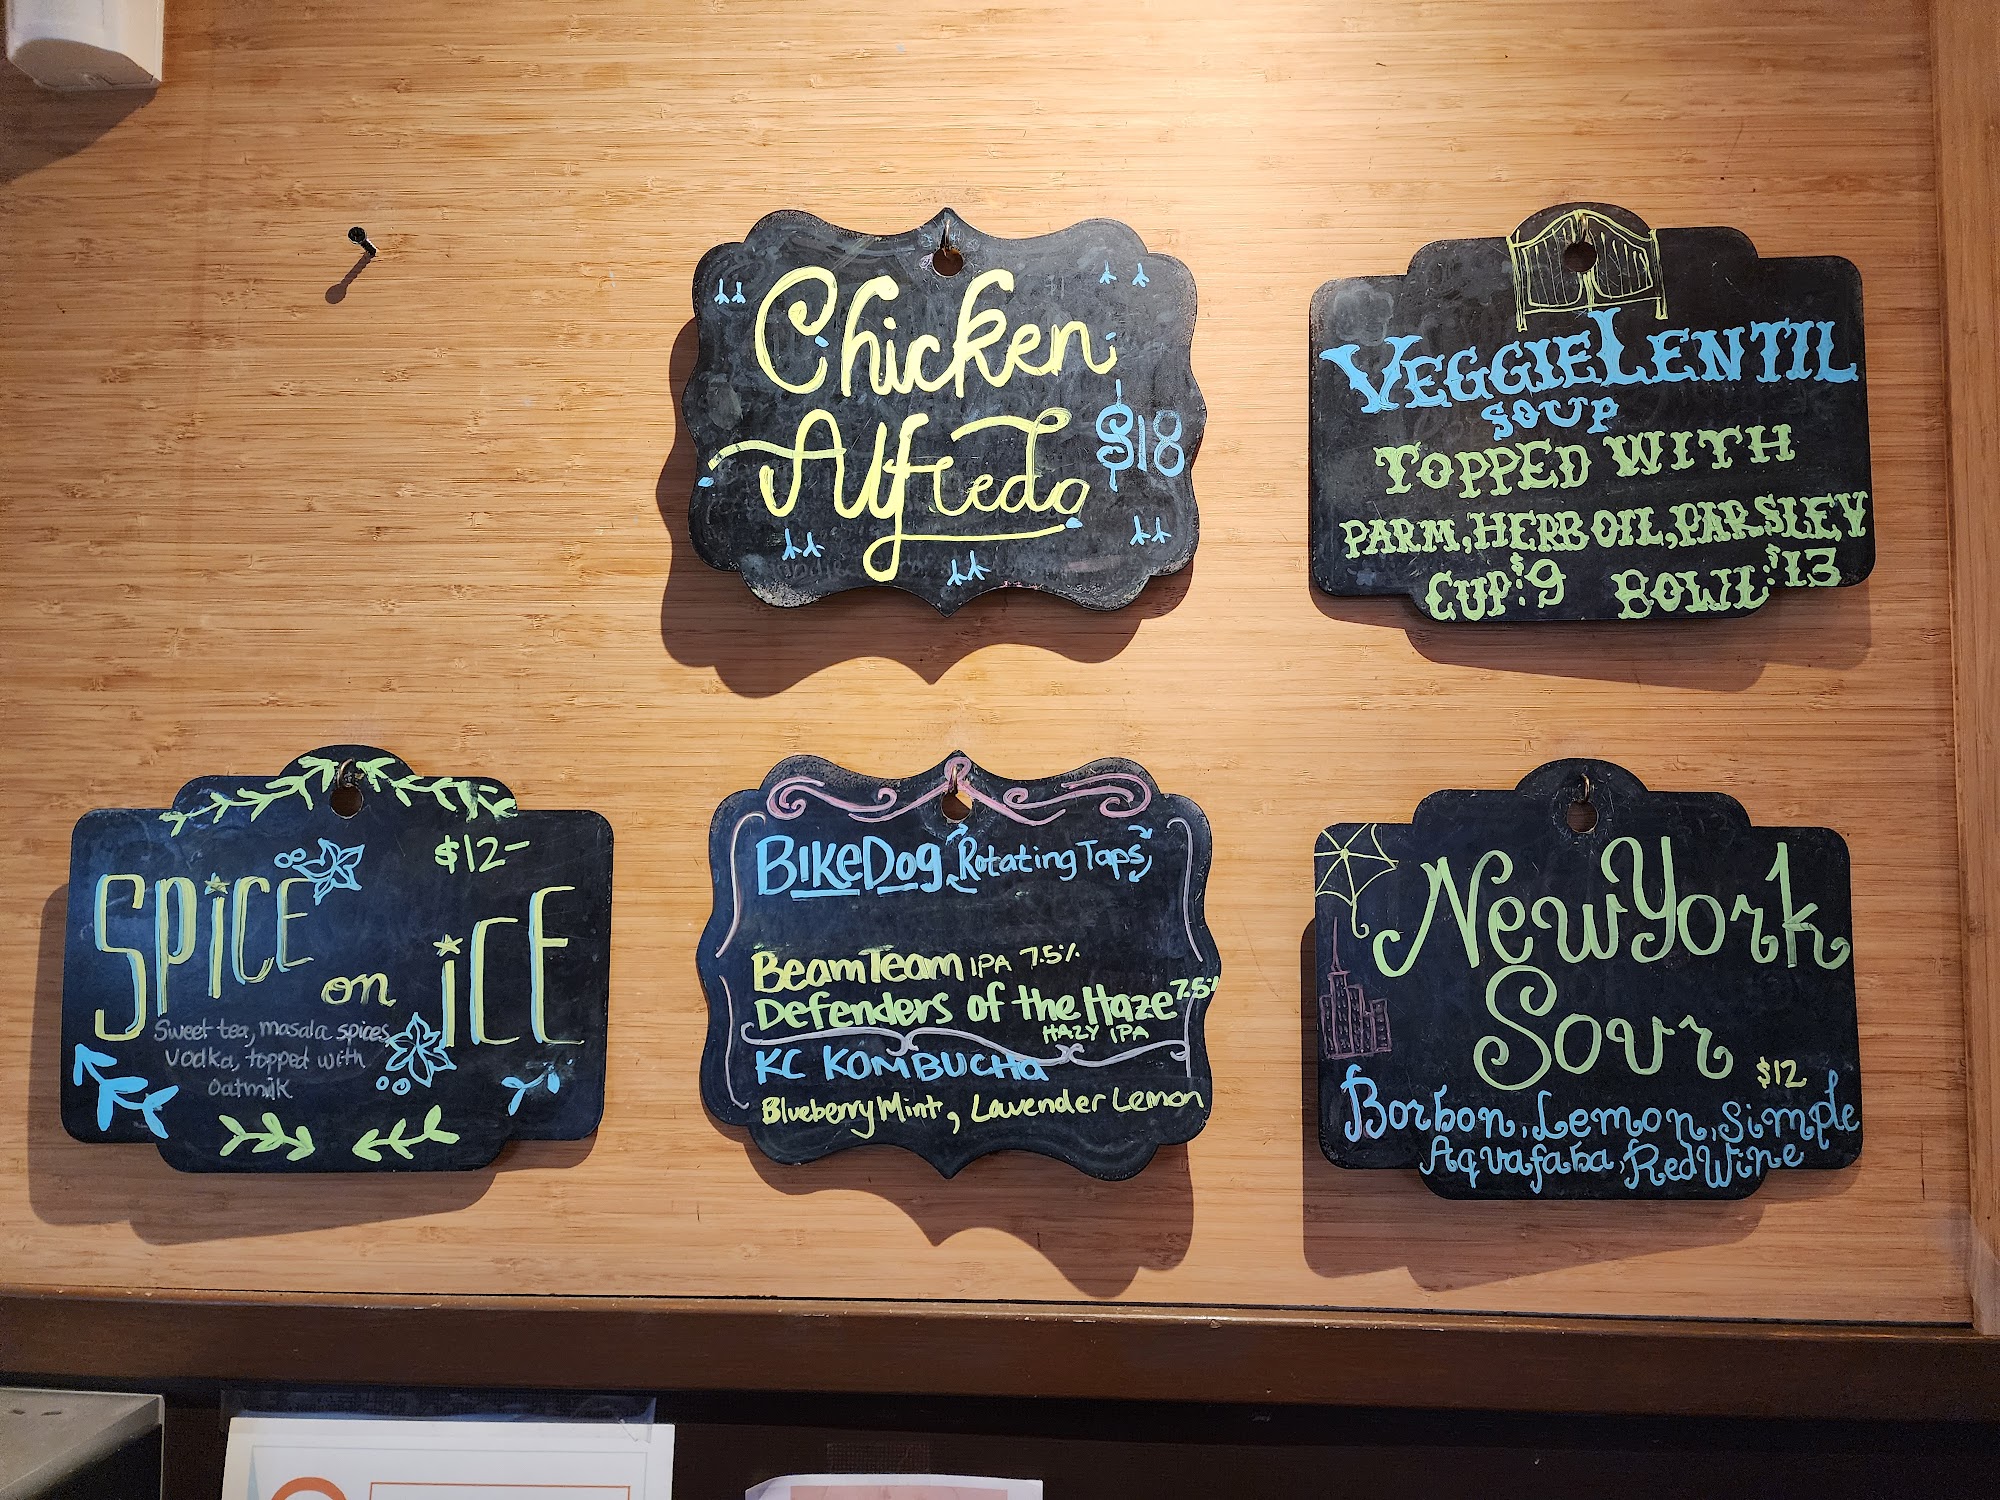 Chicken
Alfredo
$18
VEGGIE LENTIL
SOUP
TOPPED WITH
PARM, HERB OIL, PARSLEY
CUP: $9 BOWL: $13
$12-
SPiCE
on iCE
Sweet tea, masala spices,
Vodka, topped with
oatmilk
BikeDog Rotating Taps
BeamTeam IPA 7.5%
Defenders of the Haze 7.5%
HAZY IPA
KC KOMBUCHa
Blueberry Mint, Lavender Lemon
New York
Sour
$12
Borbon, Lemon, Simple
Aquafaba, Red Wine